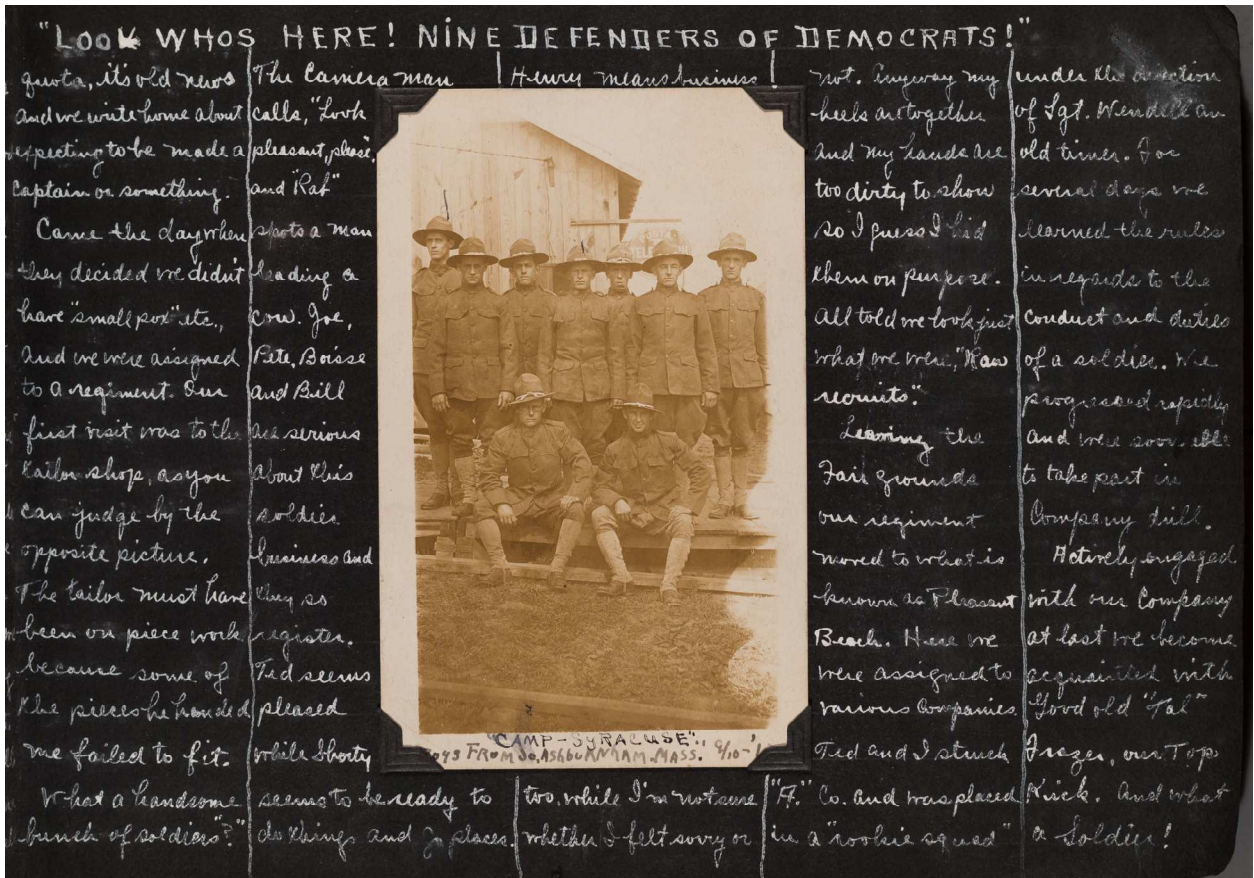 "LOOK WHOS HERE! NINE DEFENDERS OF DEMOCRATS!"
quota, it's old news
and we write home about
expecting to be made a
captain or something.
Came the day when
they decided we didn't
have "small pox" etc.,
and we were assigned
to a regiment. Our
first visit was to the
tailor shop, as you
can judge by the
opposite picture.
The tailor must have
been on piece work
because some of
the pieces he handed
me failed to fit.
What a handsome
bunch of soldiers"?"
The Camera man
calls, "Look
pleasant, please,"
and "Rat"
spots a man
leading a
cow. Joe,
Pete, Boisse
and Bill
are serious
about this
soldier
business and
they so
register.
Ted seems
pleased
while Shorty
seems to be ready to
do things and go places.
Henry means business
too, while I'm not sure
whether I felt sorry or
not. Anyway my
heels are together
and my hands are
too dirty to show
so I guess I hid
them on purpose.
All told we look just
what we were, "Raw
recruits."
Leaving the
Fair grounds
our regiment
moved to what is
known as Pleasant
Beach. Here we
were assigned to
various Companies.
Ted and I struck
"A." Co. and was placed
in a "rookie squad"
under the direction
of Sgt. Wendell an
old timer. For
several days we
learned the rules
in regards to the
conduct and duties
of a soldier. We
progressed rapidly
and were soon able
to take part in
Company drill.
Actively engaged
with our Company
at last we become
acquainted with
Good old "Tal"
Frazer, our Top
Kick. And what
a Soldier!
"CAMP-SYRACUSE".
FROM So. ASHBURNHAM. MASS. 9/10-'1